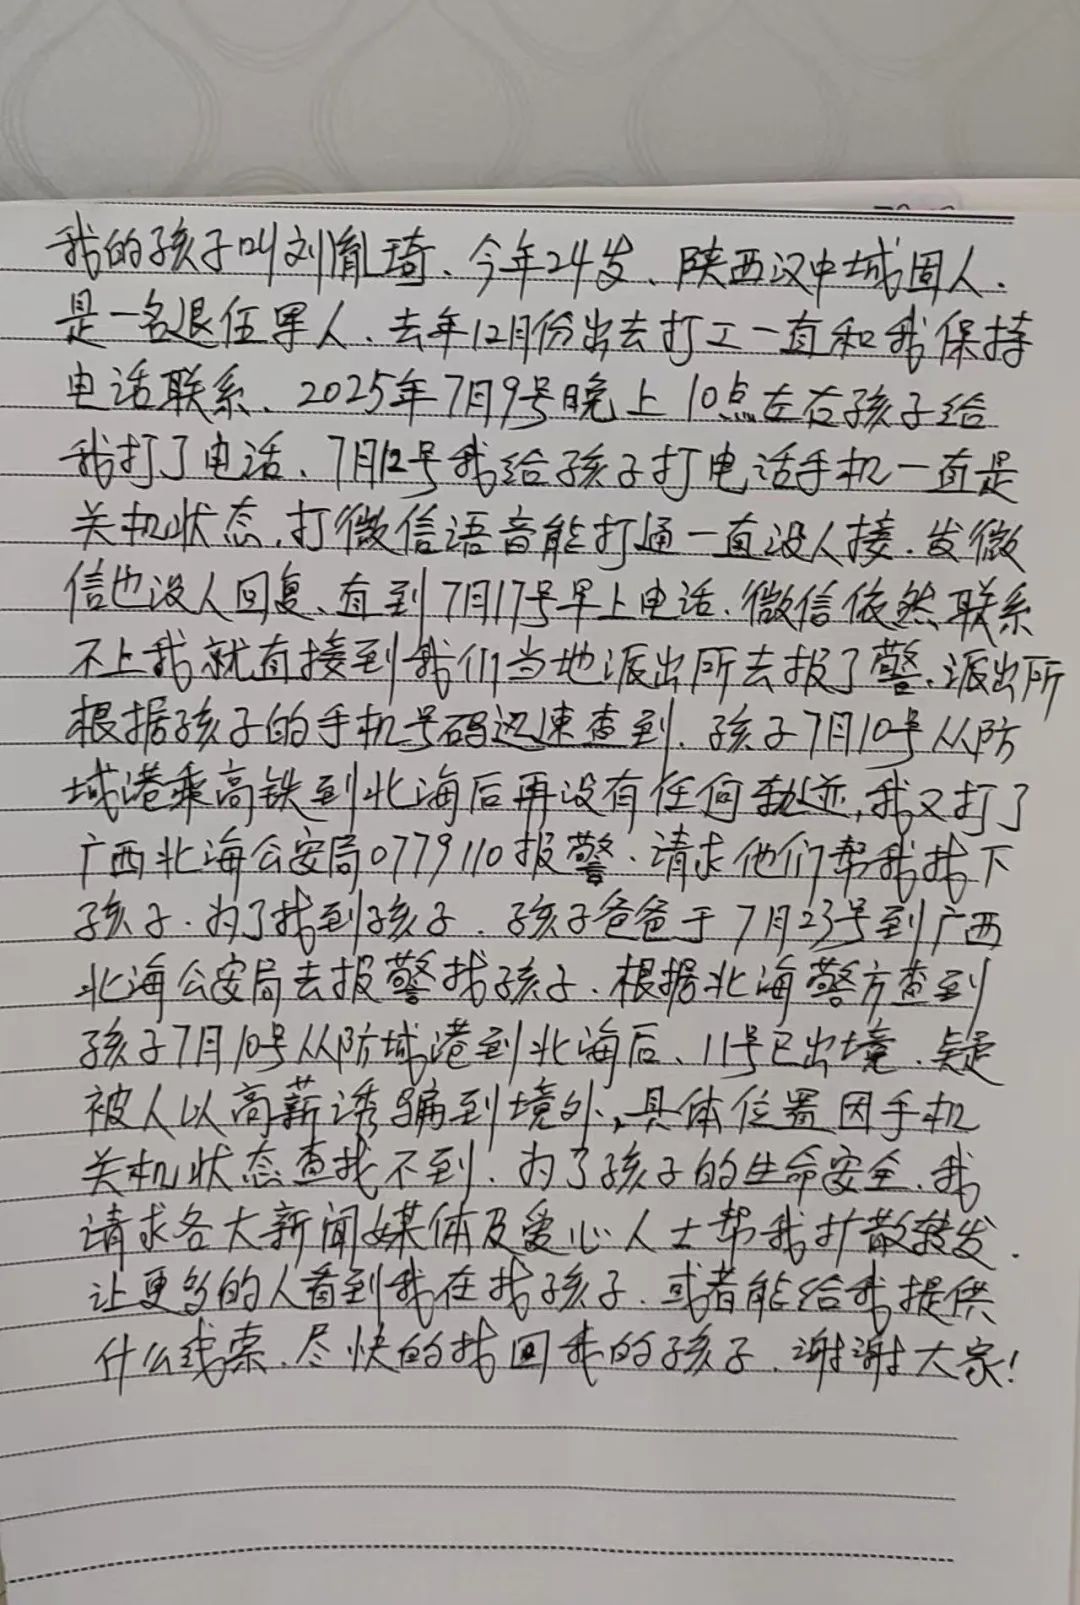 我的孩子叫刘胤琦、今年24岁、陕西汉中城固人.
是一名退伍军人、去年12月份出去打工一直和我保持
电话联系、2025年7月9号晚上10点左右孩子给
我打了电话、7月12号我给孩子打电话手机一直是
关机状态,打微信语音能打通一直没人接.发微
信也没人回复、直到7月17号早上电话、微信依然联系
不上我就直接到我们当地派出所去报了警、派出所
根据孩子的手机号码迅速查到、孩子7月10号从防
城港乘高铁到北海后再没有任何轨迹,我又打了
广西北海公安局0779110报警、请求他们帮我找下
孩子.为了找到孩子.孩子爸爸于7月23号到广西
北海公安局去报警找孩子、根据北海警方查到
孩子7月10号从防城港到北海后、11号已出境、疑
被人以高薪诱骗到境外,具体位置因手机
关机状态查找不到.为了孩子的生命安全、我
请求各大新闻媒体及爱心人士帮我扩散转发.
让更多的人看到我在找孩子.或者能给我提供
什么线索、尽快的找回我的孩子.谢谢大家!